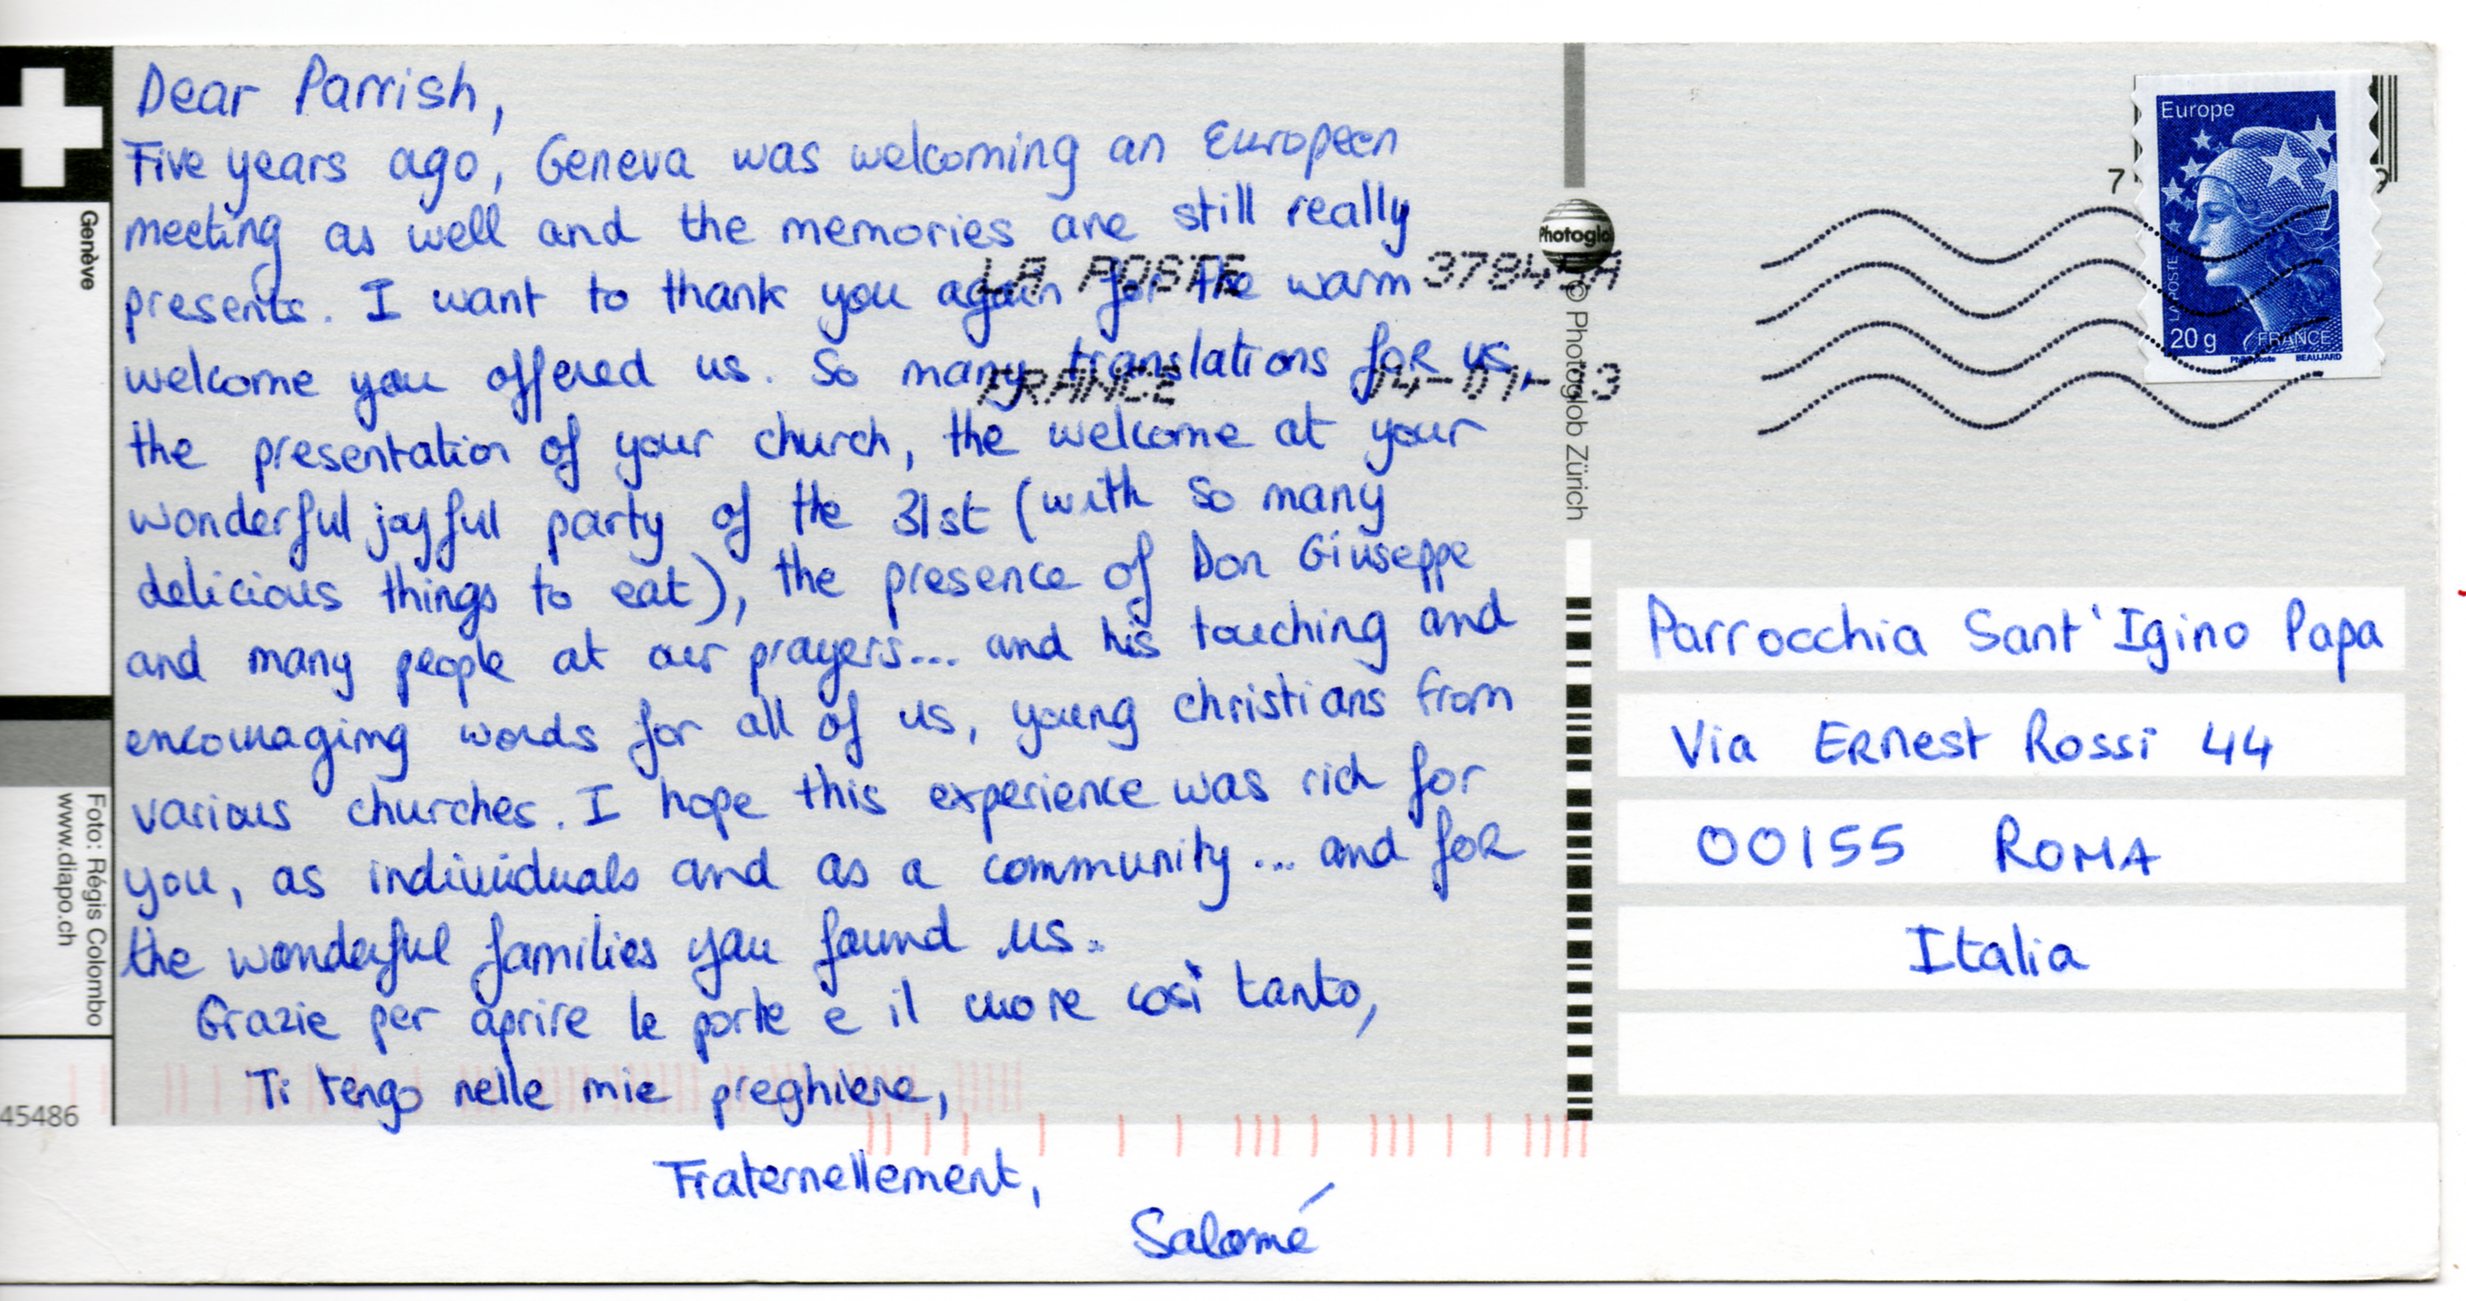 Dear Parrish,
Five years ago, Geneva was welcoming an European
meeting as well and the memories are still really
presents. I want to thank you again for the warm
welcome you offered us. So many translations for us,
the presentation of your church, the welcome at your
wonderful joyful party of the 31st (with so many
delicious things to eat), the presence of Don Giuseppe
and many people at our prayers... and his touching and
encouraging words for all of us, young christians from
various churches. I hope this experience was rich for
you, as individuals and as a community... and for
the wonderful families you found us.
Grazie per aprire le porte e il cuore così tanto,
Ti tengo nelle mie preghiere,
Fraternellement,
Salomé
Genève
Foto: Régis Colombo
www.diapo.ch
45486
LA POSTE
FRANCE
Photoglob
© Photoglob Zürich
7
Europe
LA POSTE
20 g FRANCE
Philaposte BEAUJARD
Parrocchia Sant'Igino Papa
Via ERnest Rossi 44
00155 ROMA
Italia